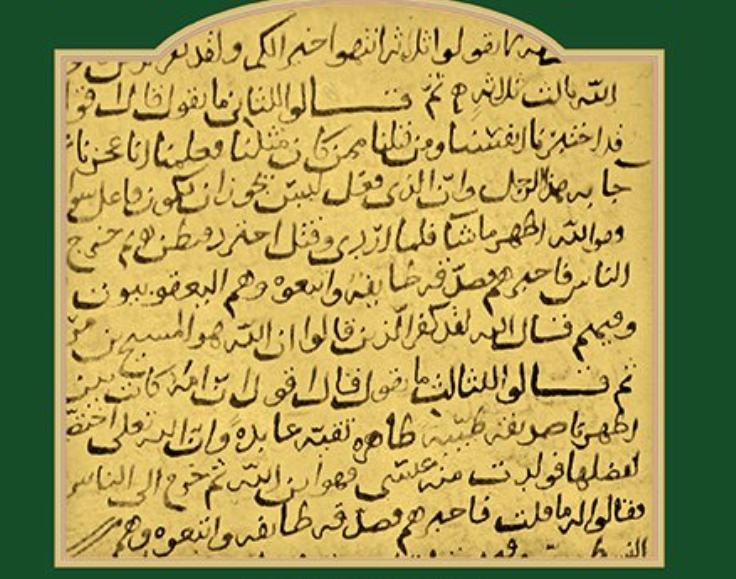 يقولوا ثلثه انتهوا خير لكم ولقد
الله ثالث ثلثه ثم قالوا للثاني ما تقول قال اقول
قد اختبرنا انفسنا ومن قبلنا ممن كان مثلنا فعلمنا انا عجزنا
جا به هذا الرجل وان الذي فعل ليس يجوز ان يكون فاعل سوا
وهو الله اظهر ما شا فلما ازدري وقتل احترز ثم خرج
الناس فاخبرهم فصدقه طايفه واتبعوه وهم اليعقوبيون
وفيهم قال الله لقد كفر الذين قالوا ان الله هو المسيح بن مر
ثم قالوا للثالث ما تقول قال اقول ان امه كانت بين
اظهرنا صديقه طيبه طاهره تقيه عابده وان الله تعلى اختصها
لفضلها فولدت منه عيسى فهو ابن الله ثم خرج الى الناس
فقالوا له ما قلت فاخبرهم فصدقه طايفه واتبعوه وهم